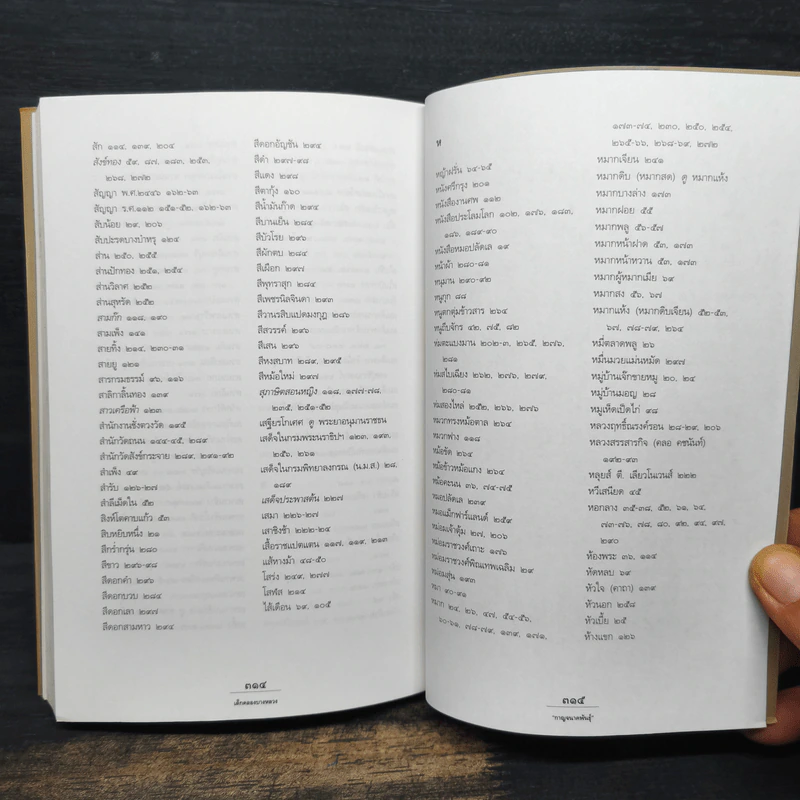 สัก ๑๑๔, ๑๓๙, ๒๐๔
สังข์ทอง ๕๙, ๘๗, ๑๘๓, ๒๕๓,
๒๖๘, ๒๗๒
สัญญา พ.ศ.๒๔๔๖ ๑๖๒-๖๓
สัญญา ร.ศ.๑๑๒ ๑๕๑-๕๒, ๑๖๒-๖๓
สับน้อย ๒๙, ๒๐๖
สับปะรดบางป่าหรุ ๑๒๔
ส่าน ๒๕๐, ๒๕๕
ส่านปักทอง ๒๕๑, ๒๕๔
ส่านวิลาศ ๒๕๒
ส่านสุหรัด ๒๕๒
สามก๊ก ๑๑๘, ๑๙๐
สามเพ็ง ๑๔๑
สายทิ้ง ๒๑๔, ๒๓๐-๓๑
สายยู ๑๒๑
สารกรมธรรม์ ๙๖, ๑๑๖
สาลิกาลิ้นทอง ๑๓๙
สาวเครือฟ้า ๑๒๓
สำนักงานชังตวงวัด ๑๙๕
สำนักวัดถนน ๑๔๔-๔๕, ๒๘๙
สำนักวัดสังข์กระจาย ๒๘๙, ๒๙๑-๙๒
สำเพ็ง ๔๙
สำรับ ๑๒๖-๒๗
สำลีเม็ดใน ๕๒
สิงห์โตคาบแก้ว ๕๓
สิบหยิบหนึ่ง ๒๑
สีกร่ำกรุ่น ๒๘๐
สีขาว ๒๙๖-๙๘
สีดอกคำ ๒๙๖
สีดอกบวบ ๒๘๔
สีดอกเลา ๒๙๗
สีดอกสามหาว ๒๙๔
สีดอกอัญชัน ๒๙๔
สีดำ ๒๙๗-๙๘
สีแดง ๒๙๘
สีตากุ้ง ๑๖๐
สีน้ำมันก๊าด ๒๙๔
สีบานเย็น ๒๘๔
สีบัวโรย ๒๙๖
สีผักตบ ๒๘๔
สีเผือก ๒๙๗
สีพุทราสุก ๒๘๔
สีเพชรนิลจินดา ๒๙๓
สีวานรสิบแปดมงกุฎ ๒๘๖
สีสวรรค์ ๒๙๖
สีเสน ๒๙๖
สีหงสบาท ๒๘๙, ๒๙๕
สีหม้อใหม่ ๒๙๗
สุภาษิตสอนหญิง ๑๑๘, ๑๗๗-๗๘,
๒๓๕, ๒๕๑-๕๒
เสฐียรโกเศศ ดู พระยาอนุมานราชธน
เสด็จในกรมพระนราธิปฯ ๑๒๓, ๑๙๓,
๒๕๖, ๒๖๑
เสด็จในกรมพิทยาลงกรณ (น.ม.ส.) ๒๘,
๑๘๙
เสด็จประพาสต้น ๒๒๗
เสมา ๒๒๖-๒๗
เสาชิงช้า ๒๒๒-๒๔
เสื้อราชแปตแตน ๑๑๗, ๑๑๙, ๒๑๓
แส้หางม้า ๔๘-๕๐
โสร่ง ๒๔๙, ๒๗๗
โสฬส ๒๑๔
ไส้เดือน ๖๙, ๑๐๕
๓๑๔
เด็กคลองบางหลวง
ห
หญ้าฝรั่น ๖๔-๖๕
หนังศรีกรุง ๒๐๑
หนังสืองานศพ ๑๑๒
หนังสือประโลมโลก ๑๐๒, ๑๗๖, ๑๘๓,
๑๘๖, ๑๘๙-๙๐
หนังสือหมอปลัดเล ๑๙
หน้าผ้า ๒๘๐-๘๑
หนุมาน ๒๙๐-๙๒
หนูกุก ๘๘
หนูตกถุ่มข้าวสาร ๒๖๔
หนูถีบจักร ๔๒, ๗๕, ๘๒
ห่มตะแบงมาน ๒๐๒-๓, ๒๖๕, ๒๗๖,
๒๘๑
ห่มสไบเฉียง ๒๖๒, ๒๗๖, ๒๗๙,
๒๘๐-๘๑
ห่มสองไหล่ ๒๕๒, ๒๖๖, ๒๗๖
หมวกทรงหม้อตาล ๒๖๔
หมวกฟาง ๑๑๘
หม้อขัด ๒๖๔
หม้อข้าวหม้อแกง ๒๖๔
หม้อคะนน ๓๖, ๗๔-๗๕
หมอปลัดเล ๒๓๙
หมอแม็กฟาร์แลนด์ ๒๕๙
หม่อมเจ้าตุ้ม ๒๗, ๒๐๖
หม่อมราชวงศ์เถาะ ๑๗๖
หม่อมราชวงศ์พิณเทพเฉลิม ๒๙
หม่อมสุ่น ๑๙๓
หมา ๙๐-๙๑
หมาก ๒๔, ๒๖, ๔๗, ๕๔-๕๖,
๖๐-๖๑, ๗๘-๗๙, ๑๓๙, ๑๗๑,
๑๗๓-๗๔, ๒๓๐, ๒๕๐, ๒๕๔,
๒๖๕-๖๖, ๒๖๘-๖๙, ๒๗๒
หมากเจียน ๒๔๑
หมากดิบ (หมากสด) ดู หมากแห้ง
หมากบางล่าง ๑๗๓
หมากฝอย ๕๕
หมากพลู ๕๖-๕๗
หมากหน้าฝาด ๕๓, ๑๗๓
หมากหน้าหวาน ๕๓, ๑๗๓
หมากผู้หมากเมีย ๖๙
หมากสง ๕๖, ๖๗
หมากแห้ง (หมากดิบเจียน) ๕๒-๕๓,
๖๗, ๗๘-๗๙, ๒๖๔
หมี่ตลาดพลู ๒๖
หมื่นมวยแม่นหมัด ๒๙๗
หมู่บ้านเจ๊กขายหมู ๒๐, ๒๔
หมู่บ้านมอญ ๒๘
หมูเห็ดเป็ดไก่ ๙๘
หลวงฤทธิ์ณรงค์รอน ๒๘-๒๙, ๒๐๖
หลวงสรรสารกิจ (คลอ คชนันท์)
๑๙๒-๙๓
หลุยส์ ตี. เลียวโนเวนส์ ๒๒๒
หวีเสนียด ๔๕
หอกลาง ๓๕-๓๘, ๕๒, ๖๑, ๖๔,
๗๓-๗๖, ๗๘, ๘๐, ๙๒, ๙๔, ๙๗,
๒๙๐
ห้องพระ ๓๖, ๑๑๔
หัดหลบ ๖๙
หัวใจ (คาถา) ๑๓๙
หัวนอก ๒๕๘
หัวเบี้ย ๒๕
ห้างแขก ๑๒๖
๓๑๕
"กาญจนาคพันธุ์"